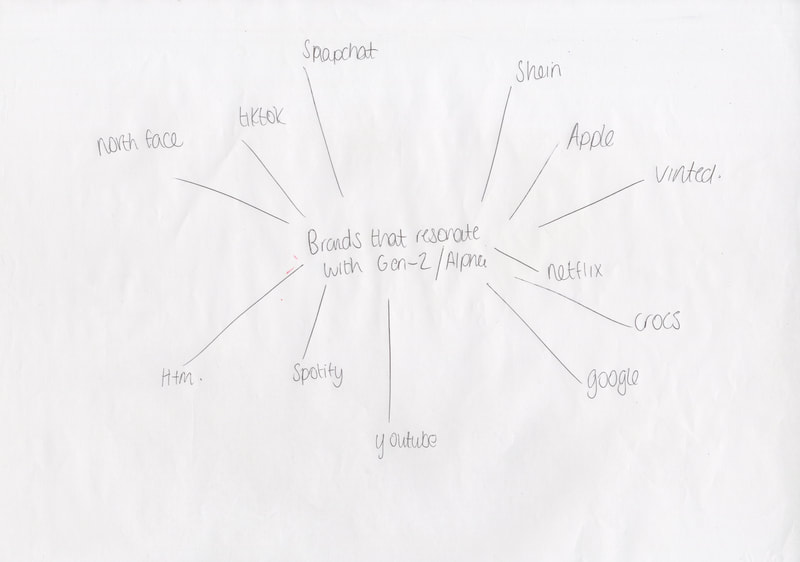 Snapchat
Shein
tiktok
Apple
north face
vinted.
Brands that resonate
with Gen-Z/Alpha
netflix
crocs
H+m.
Spotify
google
youtube